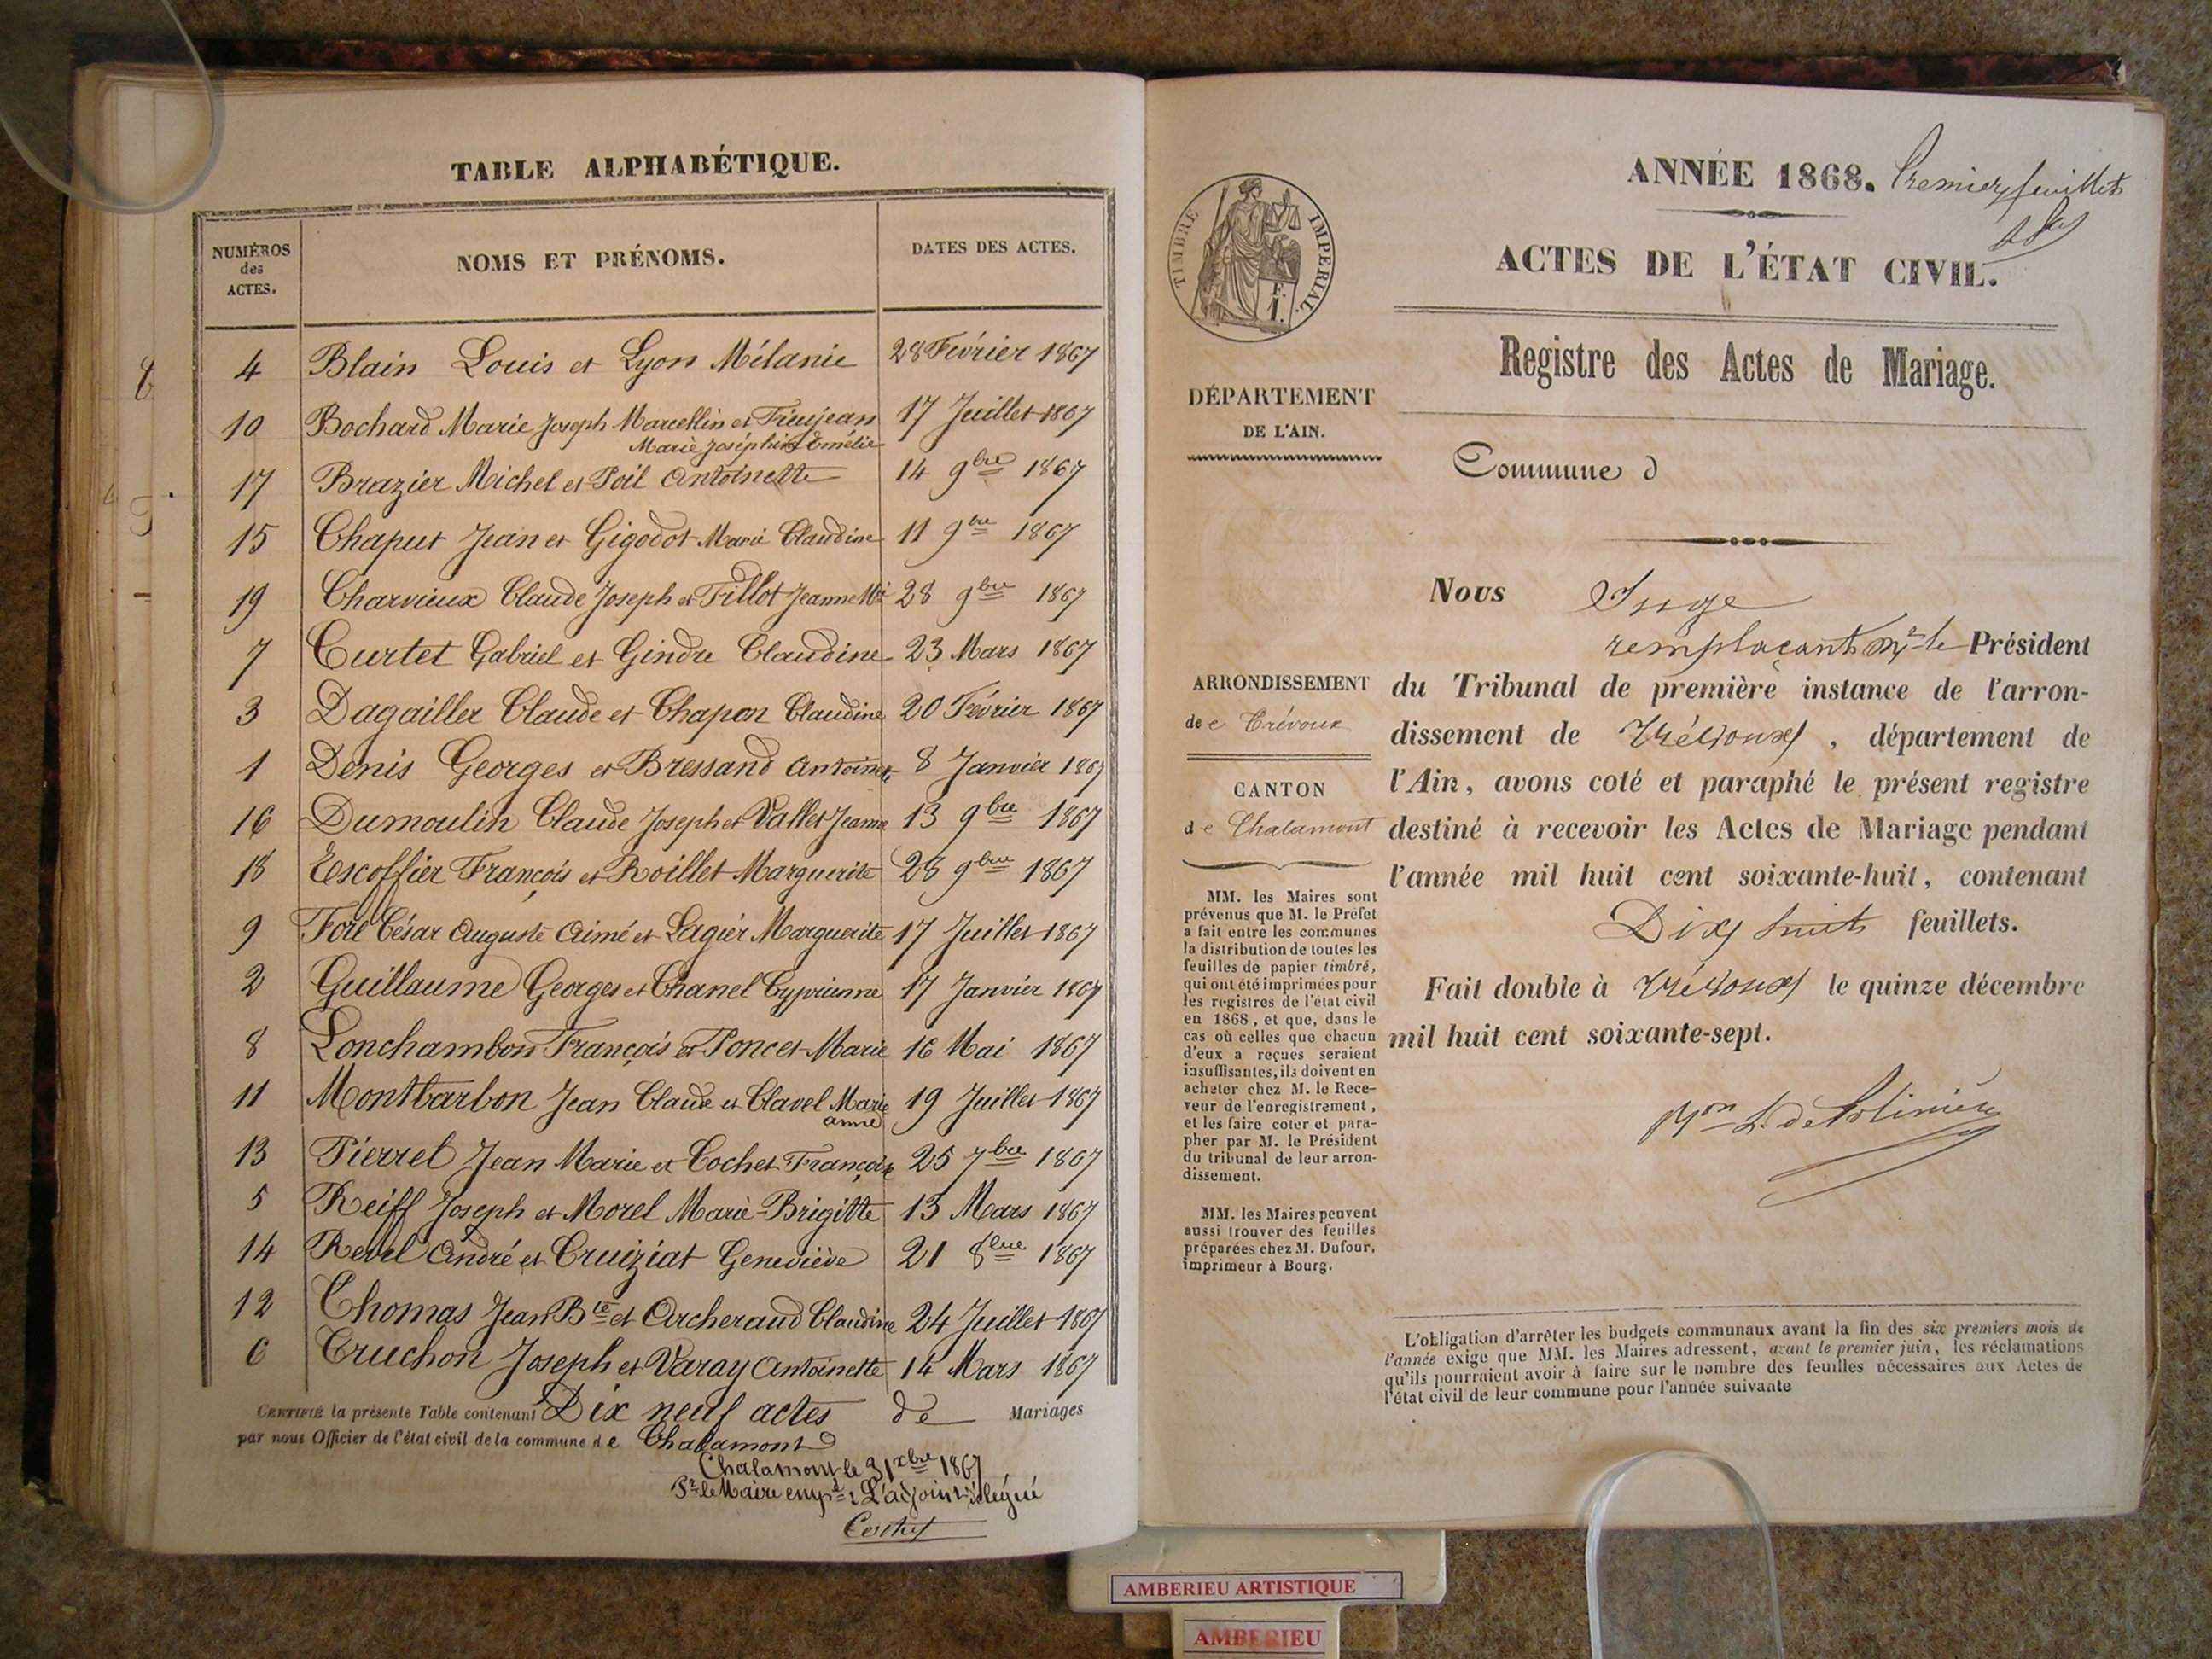 TABLE ALPHABÉTIQUE.
NUMÉROS des ACTES.
NOMS ET PRÉNOMS.
DATES DES ACTES.
4 Blain Louis et Lyon Mélanie 28 Février 1867
10 Bochard Marie Joseph Marcellin et 17 Juillet 1867
Marie Joséphine Emélie
17 Brazier Michel et Poil Antoinette 14 9bre 1867
15 Chaput Jean et Gigodot Marie Claudine 11 9bre 1867
19 Charvieux Claude Joseph et Tillot Jeanne Mie 28 9bre 1867
7 Curtet Gabriel et Gindre Claudine 23 Mars 1867
3 Dagailler Claude et Chapon Claudine 20 Février 1867
1 Denis Georges et Bressand Antoinette 8 Janvier 1867
16 Dumoulin Claude Joseph et Vallet Jeanne 13 9bre 1867
18 Escoffier François et Roillet Marguerite 28 9bre 1867
9 César Auguste Aimé et Lagier Marguerite 17 Juillet 1867
2 Guillaume Georges et Chanel Cyprienne 17 Janvier 1867
8 Lonchambon François et Poncet Marie 16 Mai 1867
11 Montbarbon Jean Claude et Clavel Marie 19 Juillet 1867
anne
13 Pierret Jean Marie et Cochet Françoise 25 7bre 1867
5 Reiff Joseph et Morel Marie Brigitte 13 Mars 1867
14 Revel André et Cruiziat Geneviève 21 8bre 1867
12 Thomas Jean Bte et Archeraud Claudine 24 Juillet 1867
6 Truchon Joseph et Varay Antoinette 14 Mars 1867
CERTIFIÉ la présente Table contenant Dix neuf actes de Mariages
par nous Officier de l'état civil de la commune de Chalamont
Chalamont le 31 xbre 1867
Pr le Maire empé: L'adjoint délégué
ANNÉE 1868. Premier feuillet
ACTES DE L'ÉTAT CIVIL.
TIMBRE IMPÉRIAL.
Registre des Actes de Mariage.
DÉPARTEMENT
DE L'AIN.
Commune d
Nous Juge
remplaçant Mr le Président
du Tribunal de première instance de l'arron-
dissement de Trévoux, département de
l'Ain, avons coté et paraphé le présent registre
destiné à recevoir les Actes de Mariage pendant
l'année mil huit cent soixante-huit, contenant
Dix huit feuillets.
Fait double à Trévoux le quinze décembre
mil huit cent soixante-sept.
ARRONDISSEMENT
de Trévoux
CANTON
de Chalamont
MM. les Maires sont
prévenus que M. le Préfet
a fait entre les communes
la distribution de toutes les
feuilles de papier timbré,
qui ont été imprimées pour
les registres de l'état civil
en 1868, et que, dans le
cas où celles que chacun
d'eux a reçues seraient
insuffisantes, ils doivent en
acheter chez M. le Rece-
veur de l'enregistrement,
et les faire coter et para-
pher par M. le Président
du tribunal de leur arron-
dissement.
MM. les Maires peuvent
aussi trouver des feuilles
préparées chez M. Dufour,
imprimeur à Bourg.
L'obligation d'arrêter les budgets communaux avant la fin des six premiers mois de
l'année exige que MM. les Maires adressent, avant le premier juin, les réclamations
qu'ils pourraient avoir à faire sur le nombre des feuilles nécessaires aux Actes de
l'état civil de leur commune pour l'année suivante
AMBERIEU ARTISTIQUE
AMBERIEU